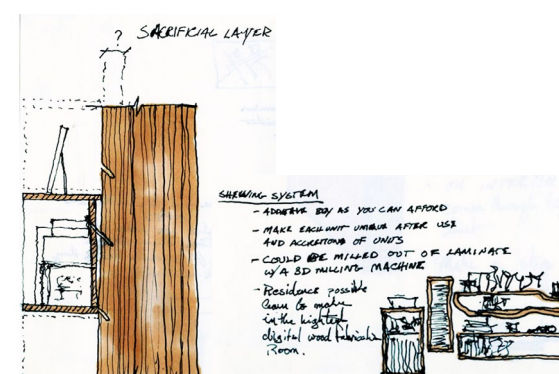 ? SACRIFICIAL LAYER
SHELVING SYSTEM
- BUY AS YOU CAN AFFORD
- MAKE EACH UNIT UNIQUE AFTER USE
AND ACCRETIONS OF UNITS
- COULD BE MILLED OUT OF LAMINATE
W/A 3D MILLING MACHINE
- Residence possible
to make
in the
digital wood
Room.